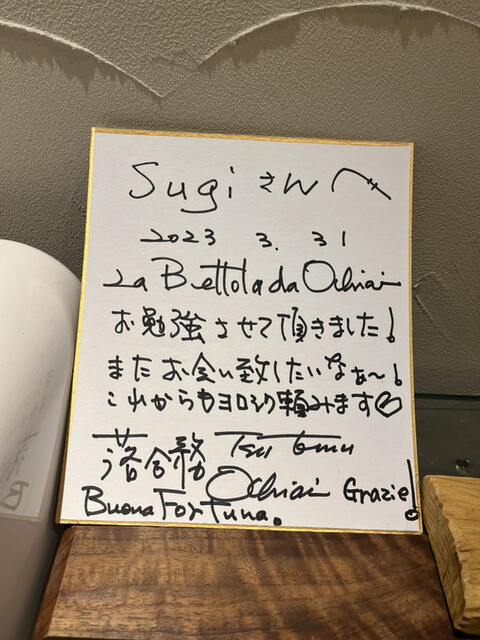 Sugi さんへ
2023 3. 31
La Bettola da Ochiai
お勉強させて頂きました!
またお会い致したいなぁ〜!
これからもヨロシク頼みます♡
落合務 Tsutomu
Ochiai Grazie!
Buona Fortuna.